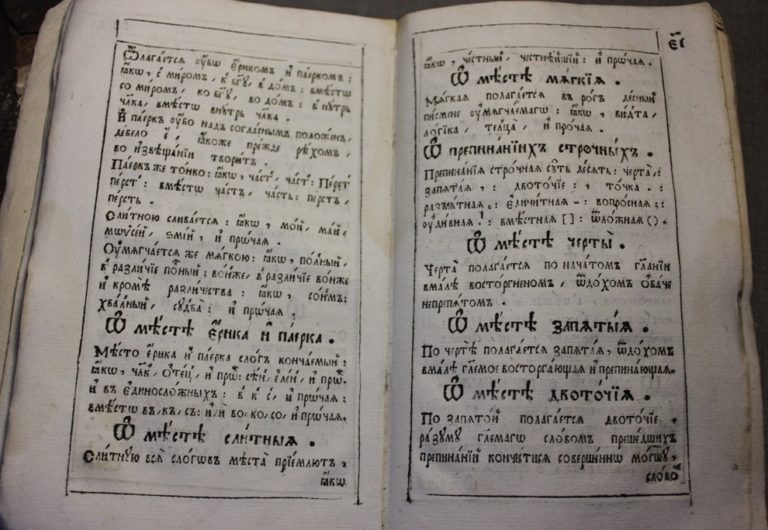 Ѿлага́ется ᲂу҆́бѡ є҆́рикомъ и҆ па́еркомъ:
ꙗ҆́кѡ, с̾ ми́ромъ, к̾ бг҃ꙋ, в̾ до́мъ: вмѣ́стѡ
со ми́ромъ, ко бг҃ꙋ, во до́мъ:
чл҃ка, вмѣ́стѡ внꙋ́трь чл҃ка.
И҆ па́еркъ ᲂу҆́бо над̾ согла́снымъ положе́нъ,
дебело̀ є҆́, ꙗ҆́коже пре́жде рѣ́хомъ,
во и҆звѣща́нїи твори́тъ.
Па́еркъ же то́нко: ꙗ҆́кѡ, ча́ст̾, ча́ст̾:
пе́рст̾: вмѣ́стѡ ча́стъ, ча́сть: пе́рстъ,
пе́рсть.
Сли́тною слива́ется: ꙗ҆́кѡ, мо́й,
мѡѷсе́й, ѕмі́й, и҆ прѡ́чаѧ.
Оу҆мѧгча́ется же мѧ́гкою: ꙗ҆́кѡ, по́лный,
в̾ разли́чїе во́нже, в̾ разли́чїе во́нже
и҆ кромѣ̀ разли́чества: ꙗ҆́кѡ, со́нмъ:
хва́лный, сꙋдба̀: и҆ прѡ́чаѧ.
Ѡ҆ мѣ́стѣ є҆́рика и҆ па́ерка.
Мѣ́сто є҆́рика и҆ па́ерка сло́гъ конча́емый:
ꙗ҆́кѡ, чл҃к̾, ѻ҆те́ц̾, и҆ прѡ́ч:
и҆ в̾ є҆диносло́жныхъ: в̾ к̾ с̾, и҆ прѡ́чаѧ:
вмѣ́стѡ въ, къ, съ: и҆лѝ во, ко, со, и҆ прѡ́чаѧ.
Ѡ҆ мѣ́стѣ сли́тныѧ.
Сли́тнꙋю всѧ̑ сло́гѡвъ мѣста̀ прїе́млютъ,
ꙗ҆́кѡ
єі
ꙗ҆́кѡ, че́стный, честнѣ́йшїй: и҆ прѡ́чаѧ.
Ѡ҆ мѣ́стѣ мѧ́гкїѧ.
Мѧ́гкаѧ полага́ется въ ро́гъ десны́й
писмене ᲂу҆мѧгча́емагѡ: ꙗ҆́кѡ,
ло́гїка, те́лца, и҆ про́чаѧ.
Ѡ҆ препина́нїихъ стро́чныхъ.
Препина́нїѧ стро́чнаѧ сꙋ́ть де́сѧть: черта̀,
запѧта́ѧ , : двото́чїе : то́чка . :
разъѧ́тнаѧ. : є҆дини́тнаѧ - : вопро́снаѧ ;:
ᲂу҆ди́внаѧ ! : вмѣ́стнаѧ [] : ѿло́жнаѧ ().
Ѡ҆ мѣ́стѣ черты̀.
Черта̀ полага́ется по нача́томъ гл҃анїи
вма́лѣ восто́ргненомъ, ѿдо́хомъ ѻ҆ба́че
непреѧ́томъ.
Ѡ҆ мѣ́стѣ запѧты́ѧ.
По чертѣ̀ полага́ется запѧта́ѧ, ѿдо́хомъ
вма́лѣ гл҃емое восторга́ющаѧ и҆ препина́ющаѧ.
Ѡ҆ мѣ́стѣ двото́чїѧ.
По запѧто́й полага́ется двото́чїе,
ра́зꙋмꙋ гл҃емагѡ сло́вомъ преше́дшихъ
препина́нїй кончи́тисѧ соверше́ннѡ могꙋ́щꙋ,
сло́во